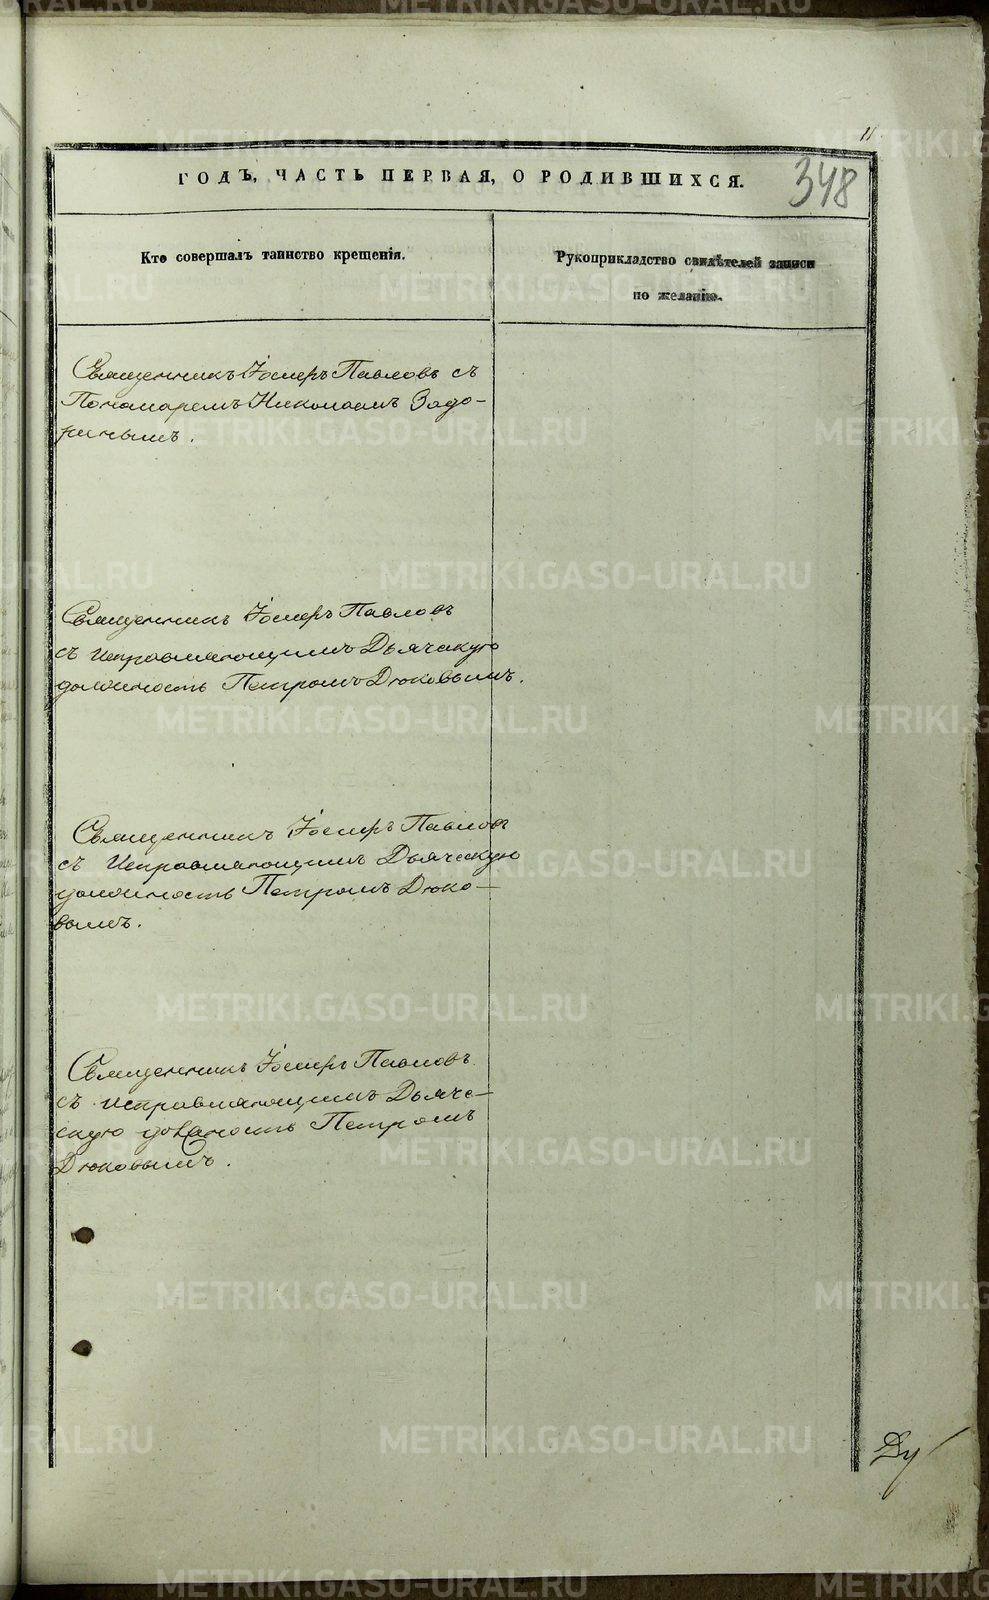 11
ГОДЪ, ЧАСТЬ ПЕРВАЯ, О РОДИВШИХСЯ.
348
Кто совершалъ таинство крещенія.
Рукоприкладство свидѣтелей записи
по желанію.
Священникъ Іосифъ Павловъ съ
Пономаремъ Николаемъ Задо-
ринымъ.
Священникъ Іосифъ Павловъ
съ исправляющимъ Дьячскую
должность Петромъ Дюковымъ.
Священникъ Іосифъ Павловъ
съ Исправляющимъ Дьяческую
должность Петромъ Дюко-
вымъ.
Священникъ Іосифъ Павловъ
съ исправляющимъ Дьяче-
скую должность Петромъ
Дюковымъ.
METRIKI.GASO-URAL.RU